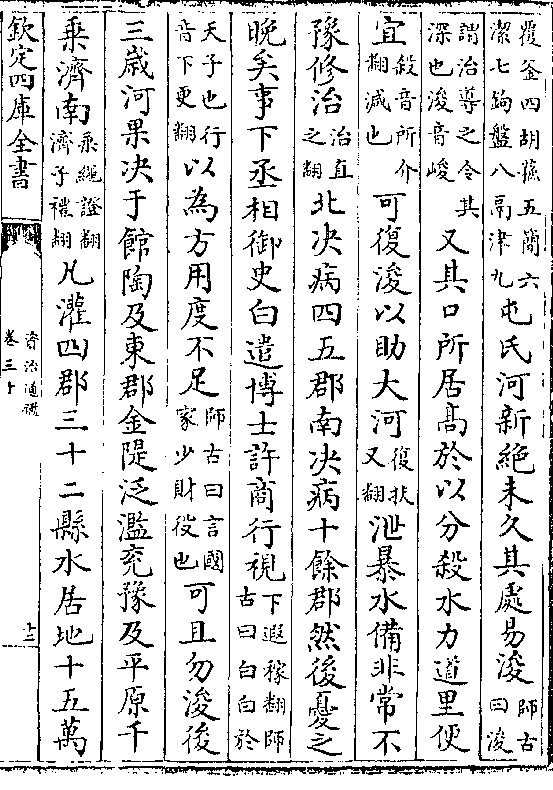 覆釜四胡蘇五簡六潔七鉤盤八鬲津九屯氏河新絶未久其處易浚師古曰浚
謂治導之令其深也浚音峻又其口所居髙於以分殺水力道里便
宜殺音所介翻減也可復浚以助大河復扶又翻泄暴水備非常不
豫修治治直之翻北决病四五郡南决病十餘郡然後憂之
晚矣事下丞相御史白遣博士許商行視下遐稼翻師古曰白白於
天子也行音下更翻以為方用度不足師古曰言國家少財役也可且勿浚後
三歳河果决于館陶及東郡金隄泛濫兖豫及平原千
乗濟南乗繩證翻濟子禮翻凡灌四郡三十二縣水居地十五萬
欽定四庫全書
資治通鑑
卷三十
十三